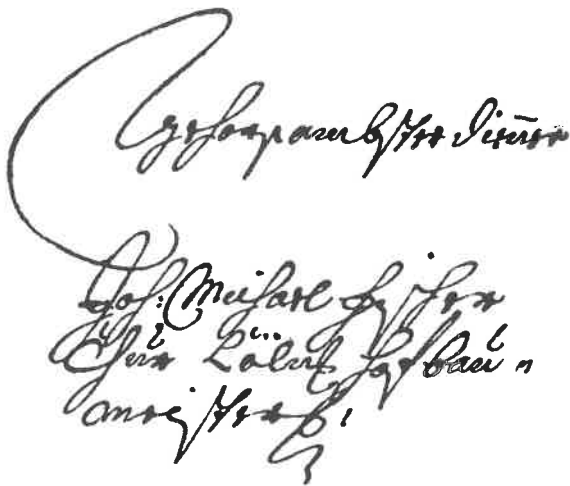 gehorsambster diener
Joh: Michael Fischer
Chur Cöln: hofbau=
meister